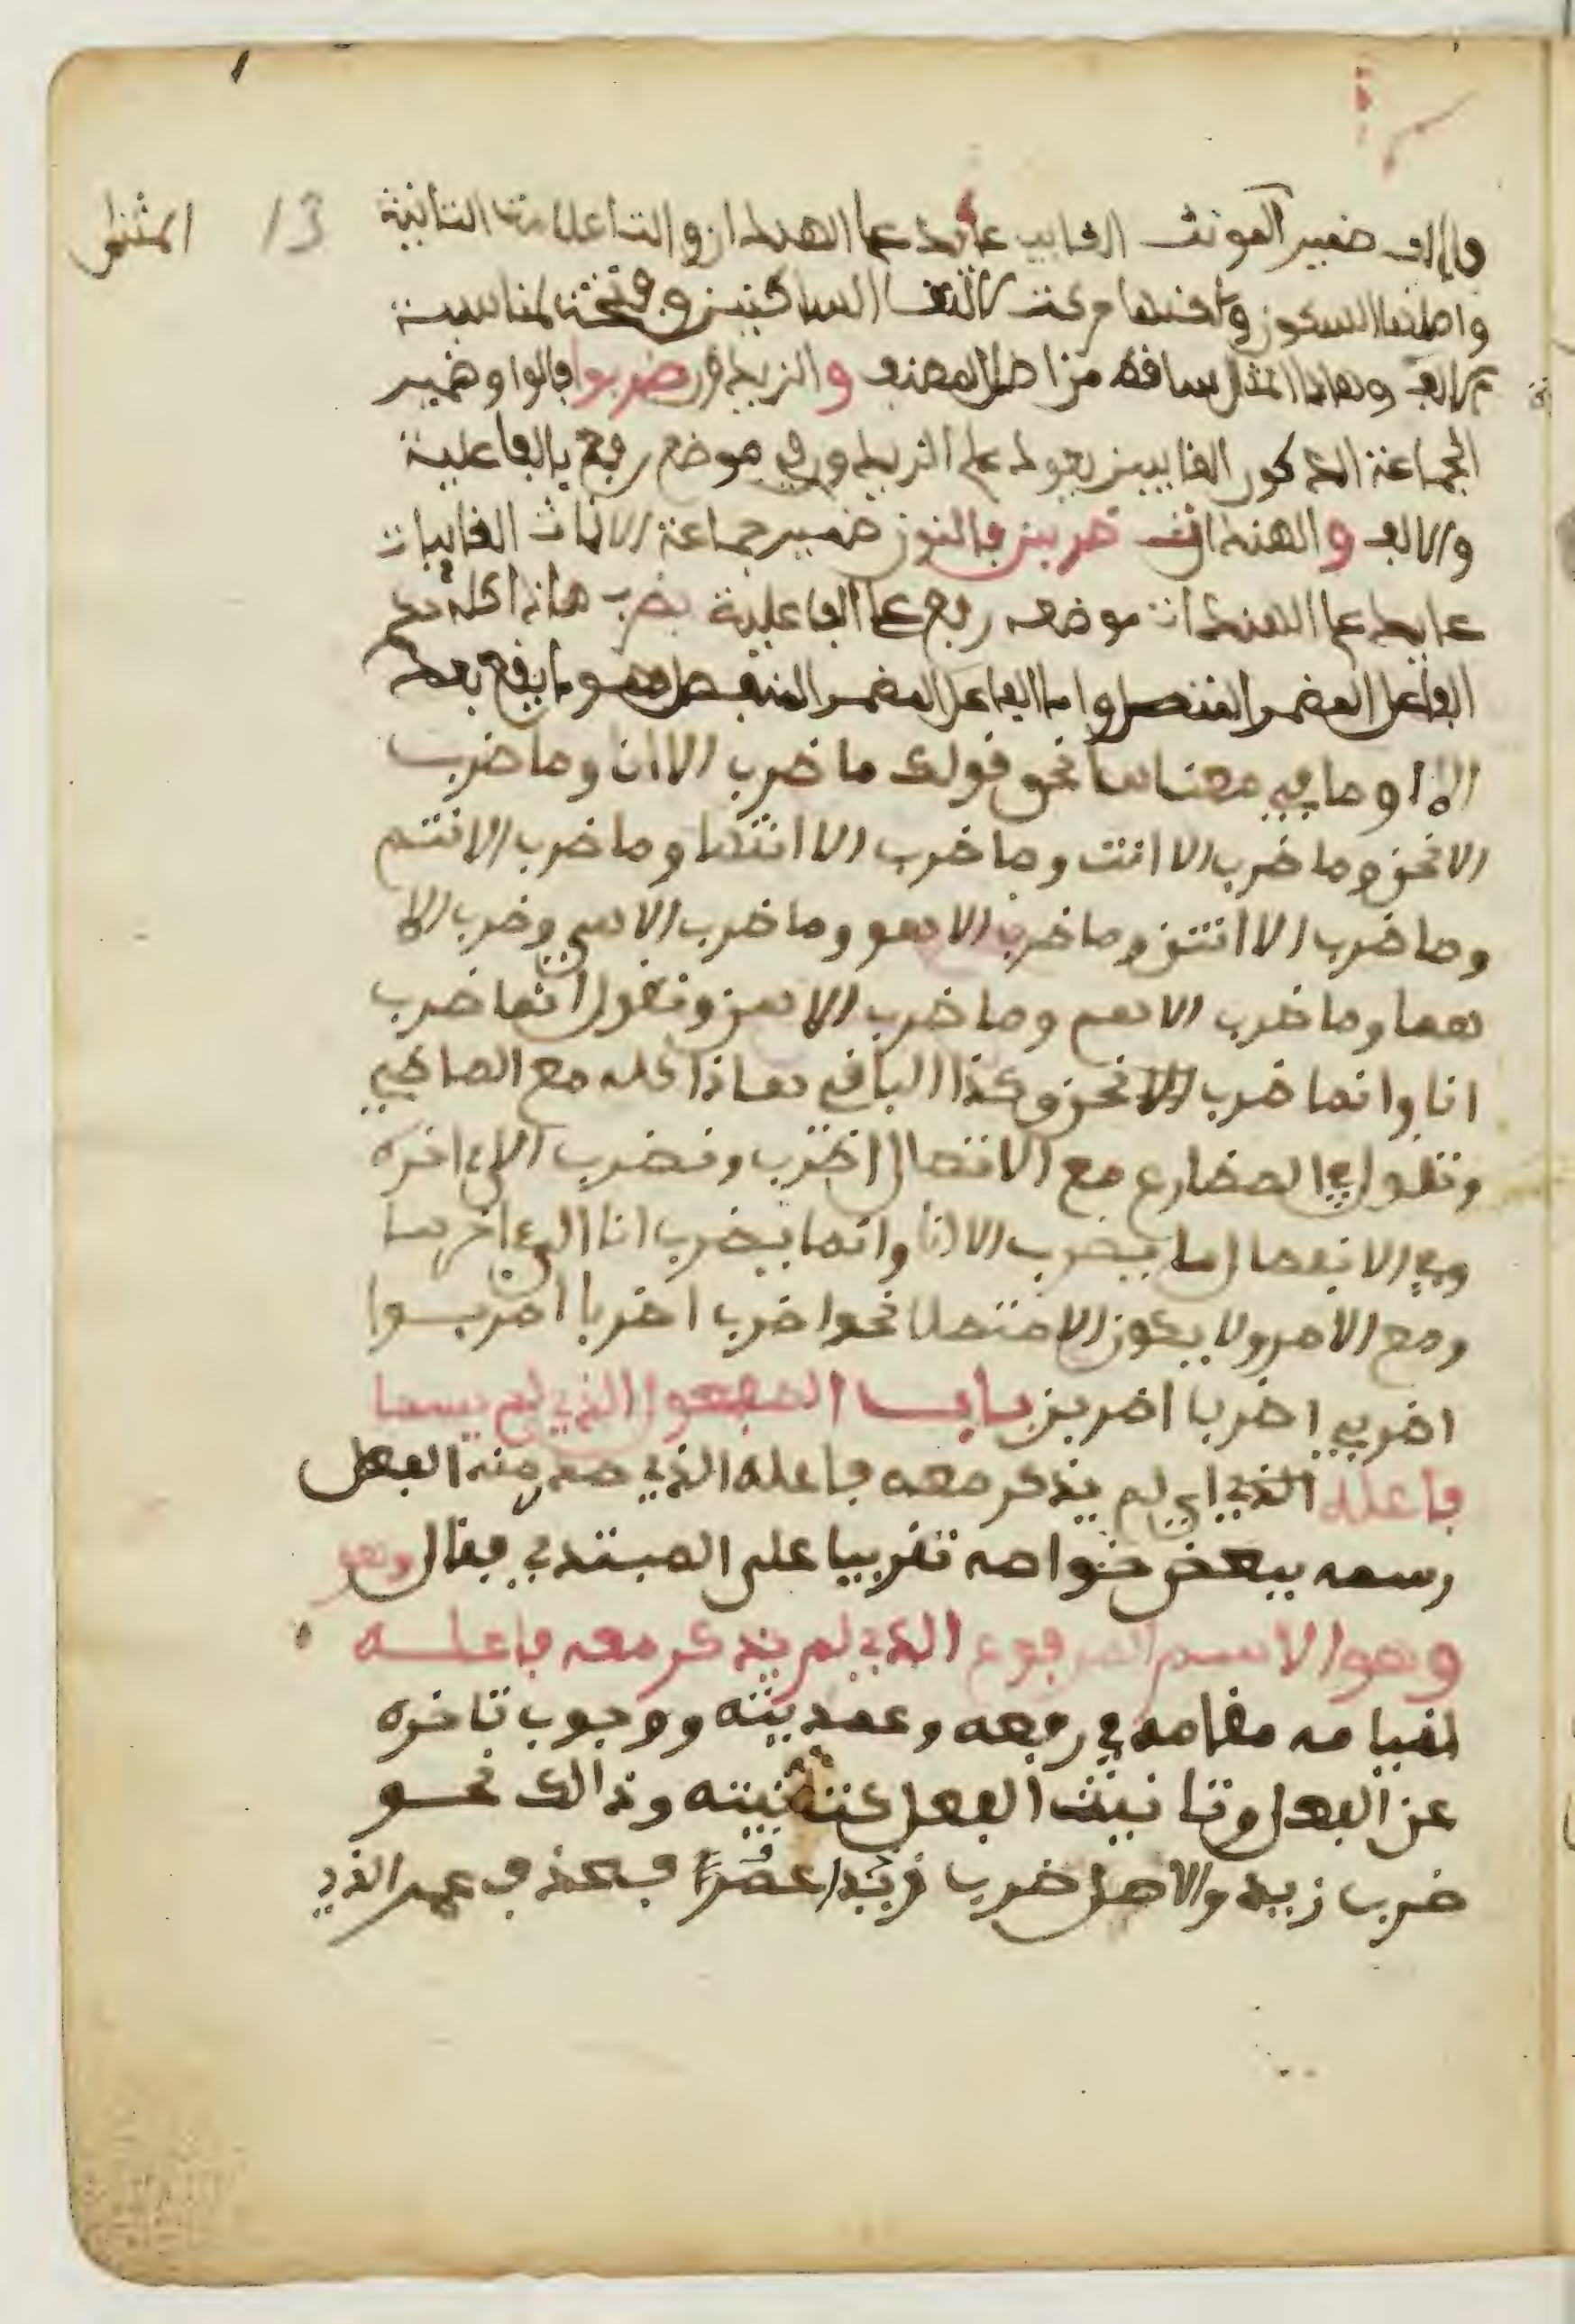 فالالف ضمير المونث الغايب عايد على الهندان والتا علامة التانيث 13 المثنى
واصلها السكون ولاكنها حركت لالتقا الساكنين وفتحت لمناسبة
الالف وهاذا المثال ساقط من اصل المصنف والزيدون ضربوا فالواو ضمير
الجماعة الذكور الغايبين يعود على الزيدون في موضع رفع بالفاعلية
والالف والهندات ضربن فالنون ضمير جماعة الاناث الغايبات
عايد على الهندات موضعه رفع على الفاعلية بضرب هاذا كله حكم
الفاعل المضمر المتصل واما الفاعل المضمر المنفصل فهو ما يقع بعد
الا او ما في معناها نحو قولك ما ضرب الا انا وما ضرب
الا نحن وما ضرب الا انت وما ضرب الا انتما وما ضرب الا انتم
وما ضرب الا انتن وما ضرب الا هو وما ضرب الا هي وضرب الا
هما وما ضرب الا هم وما ضرب الا هن وتقول انما ضرب
انا وانما ضرب الا نحن وكذا الباقي هاذا كله مع الماضي
وتقول في المضارع مع الاتصال اضرب ونضرب الى اخره
وفي الانفصال ما يضرب الا انا وانما يضرب انا الى اخرها
ومع الامر ولا يكون الا متصلا نحو اضرب اضربا اضربوا
اضربي اضربا اضربن باب المفعول الذي لم يسما
فاعله الذي اي لم يذكر معه فاعله الذي صدر منه الفعل
رسمه ببعض خواصه تقريبا على المبتدي فقال وهو
وهو الاسم المرفوع الذي لم يذكر معه فاعله
لقيامه مقامه في رفعه وعمديته ووجوب تاخره
عن الفعل وتانيث الفعل لتانيثه وذالك نحو
ضرب زيد والاصل ضرب زيدا عمرا فحذف عمر الذي